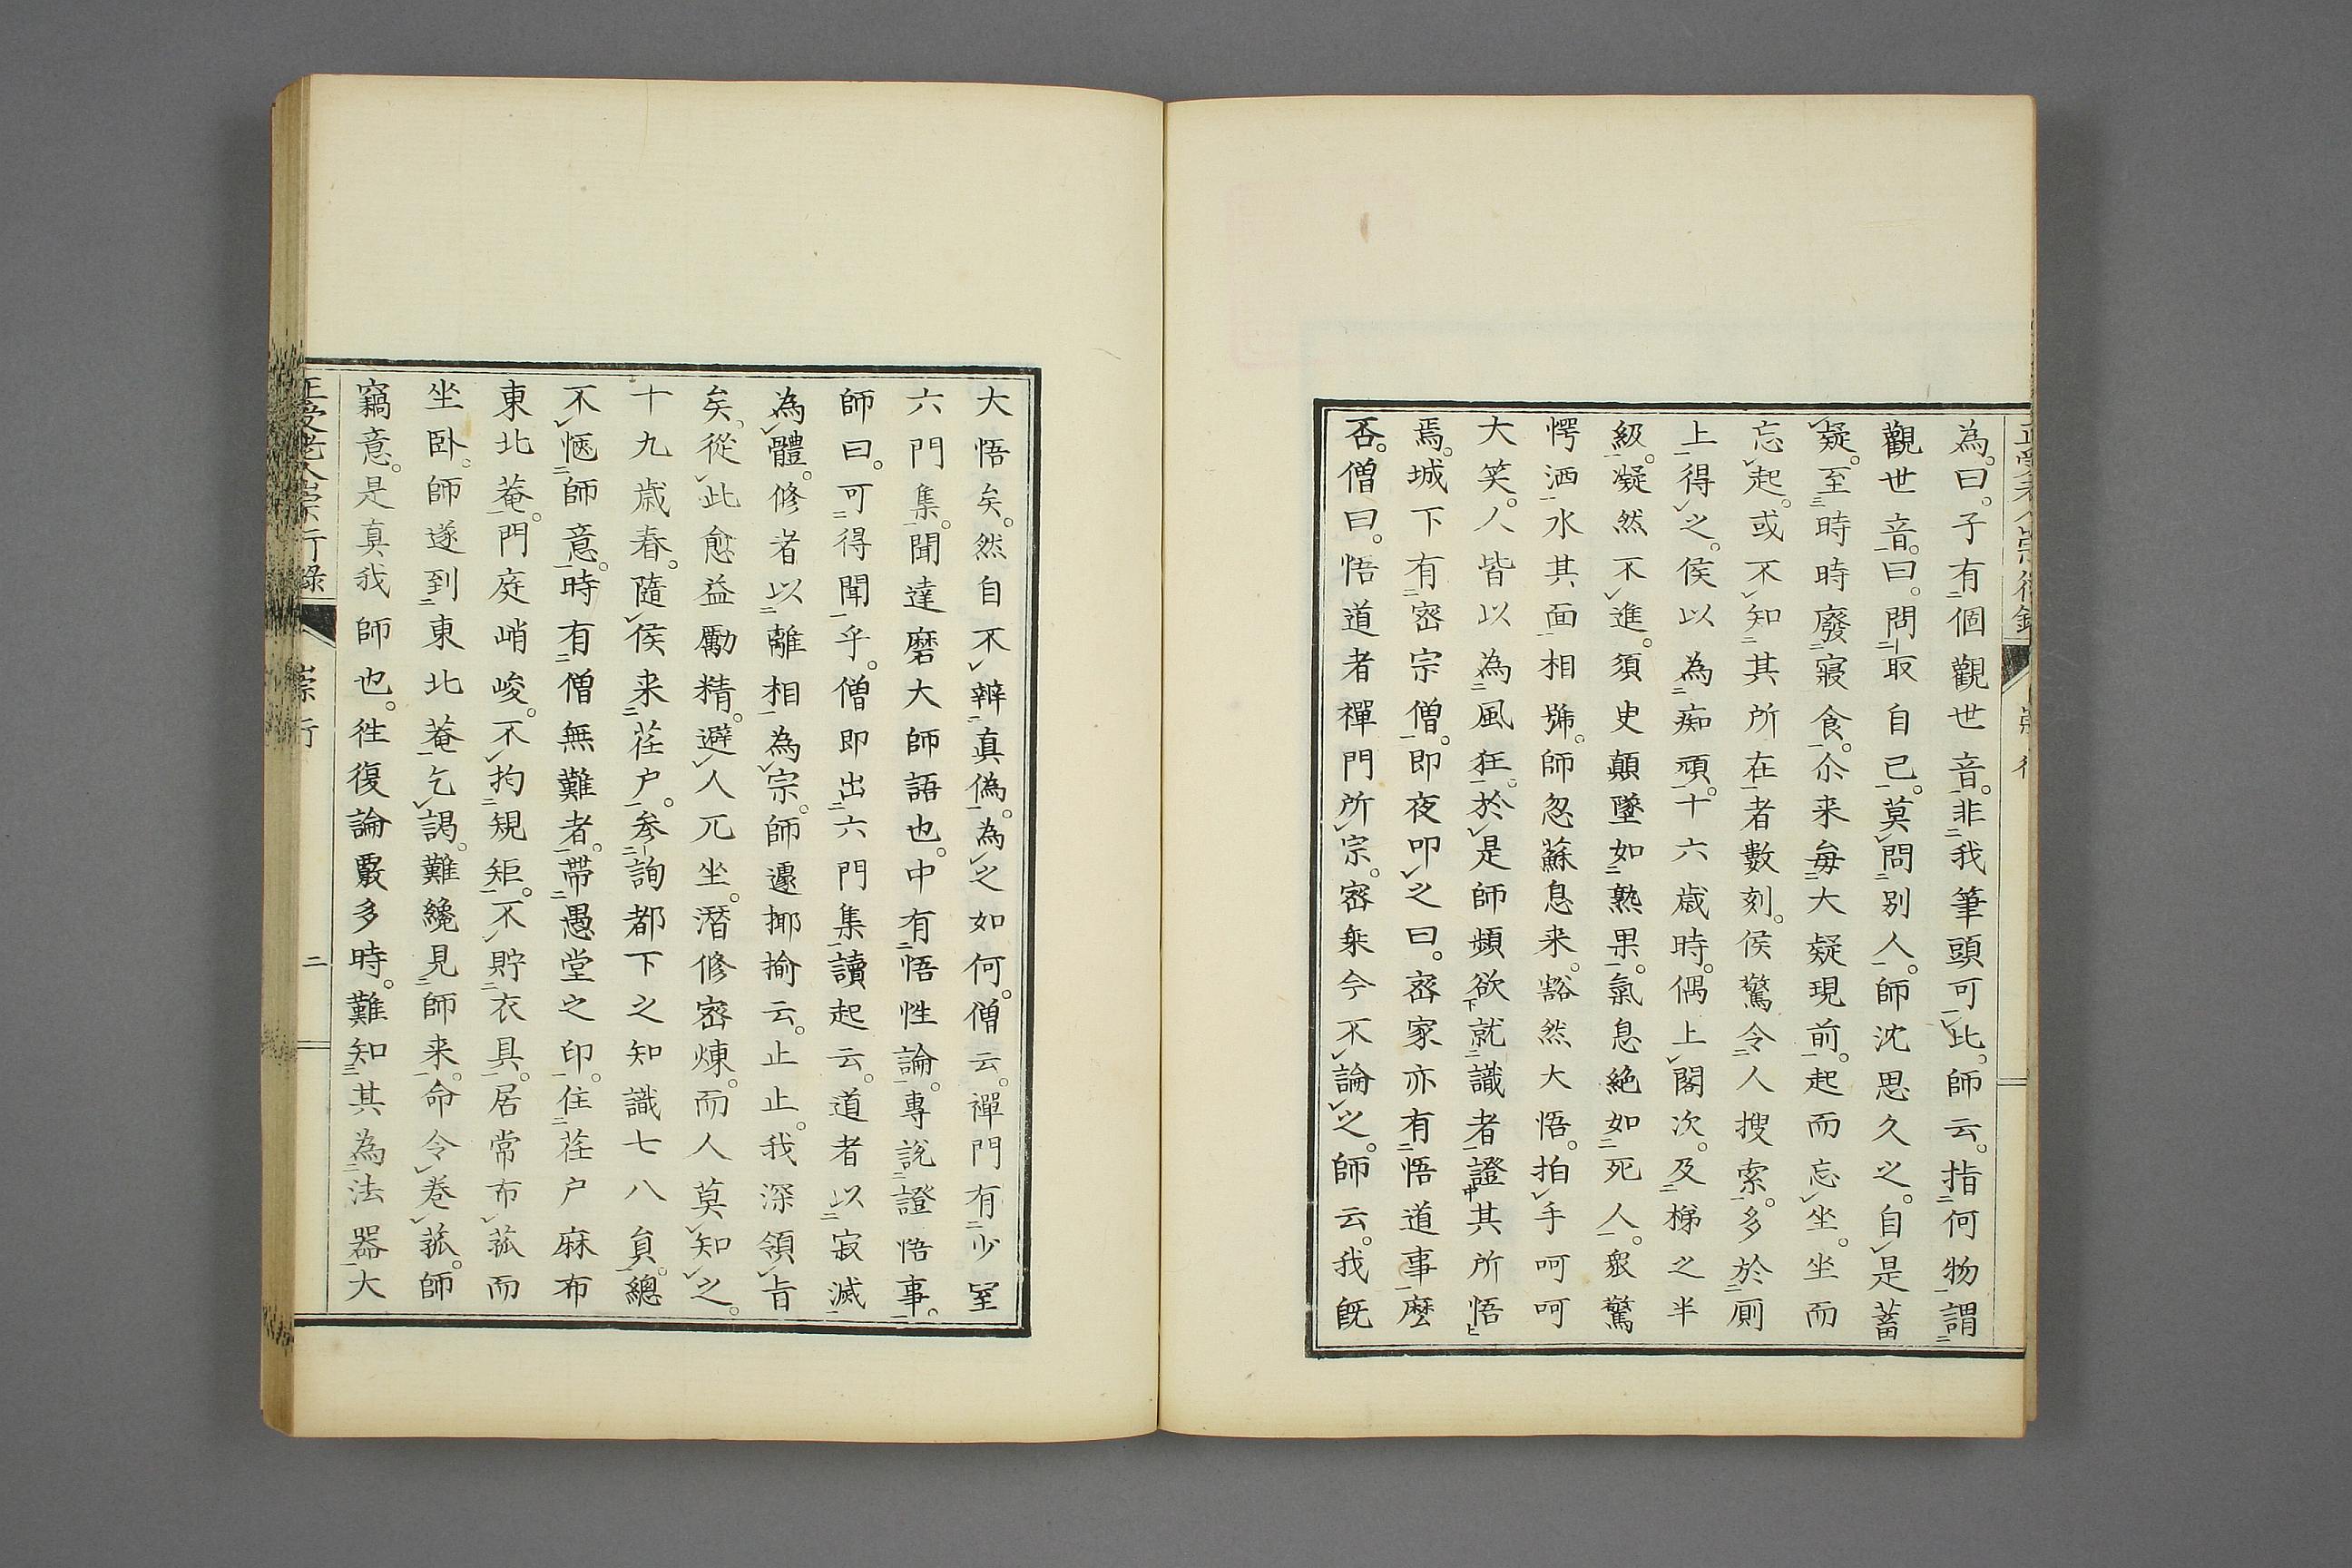 為。曰。子有個觀世音。非我筆頭可比。師云。指何物謂
觀世音。曰。問取自己。莫問別人。師沈思久之。自是蓄
疑。至時時廢寢食。尒来毎大疑現前。起而忘坐。坐而
忘起。或不知其所在者數刻。侯驚令人搜索。多於厠
上得之。侯以為痴頑。十六歳時。偶上閣次。及梯之半
級。凝然不進。須史顛墜如熟果。氣息絶如死人。衆驚
愕洒水其面相號。師忽蘇息来。豁然大悟。拍手呵呵
大笑。人皆以為風狂。於是師頻欲就識者證其所悟
焉。城下有密宗僧。即夜叩之曰。密家亦有悟道事麼
否。僧曰。悟道者禪門所宗。密乗今不論之。師云。我既
大悟矣。然自不辨真偽。為之如何。僧云。禪門有少室
六門集。聞達磨大師語也。中有悟性論。專説證悟事。
師曰。可得聞乎。僧即出六門集讀起云。道者以寂滅
為體。修者以離相為宗。師遽揶揄云。止止。我深領旨
矣。從此愈益勵精。避人兀坐。潛修密煉。而人莫知之。
十九歳春。隨侯来荏户。参詢都下之知識七八貟。總
不愜師意。時有僧無難者。帶愚堂之印。住荏户麻布
東北菴。門庭峭峻。不拘規矩。不貯衣具。居常布菰而
坐卧。師遂到東北菴乞謁。難纔見師来。命令巻菰。師
竊意。是真我師也。往復論覈多時。難知其為法器大
正受老人崇行録
崇行
二